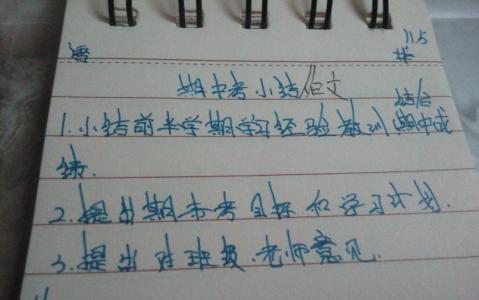 语 11.5
期中考小结作文
1.小结前半学期学习经验教训,结合期中成
绩.
2.提出期末考目标和学习计划.
3.提出对班级.老师意见.